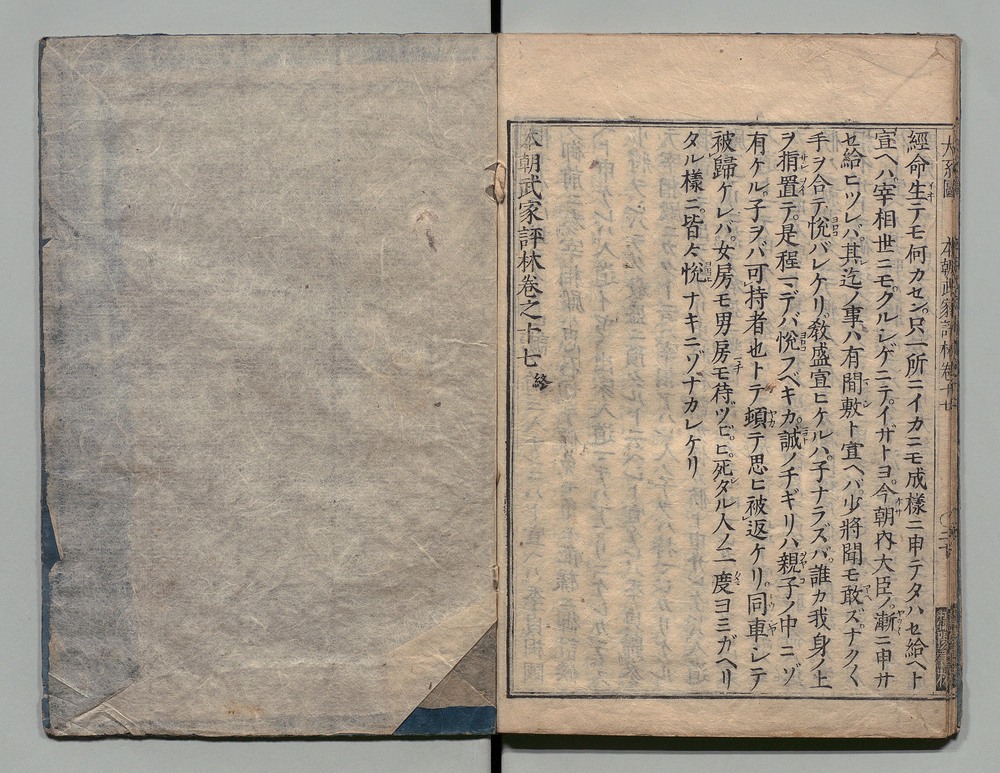 經命生テモ何カセン只一所ニイカニモ成様ニ申テタハセ給ヘト
宣ヘハ宰相世ニモクルシゲニテイザトヨ今朝内大臣ノ漸ニ申サ
セ給ヒツレバ其迄ノ事ハ有間敷ト宣ヘバ少將聞モ敢ズナク〱
手ヲ合テ悅バレケリ敎盛宣ヒケルハ子ナラズバ誰カ我身ノ上
ヲ指置テ是程マデバ悅フベキカ誠ノチギリハ親子ノ中ニゾ
有ケル子ヲバ可持者也トテ頓テ思ヒ被返ケリ同車シテ
被歸ケレバ女房モ男房モ待ツビヒ死タル人ノ二度ヨミガヘリ
タル様ニ皆々悅ナキニゾナカレケリ
本朝武家評林卷之十七 終